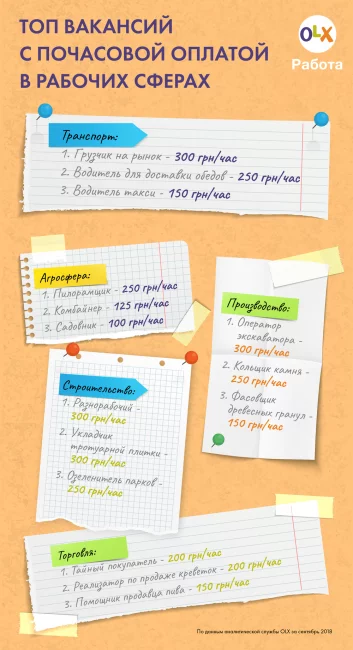 ТОП ВАКАНСИЙ
С ПОЧАСОВОЙ ОПЛАТОЙ
В РАБОЧИХ СФЕРАХ
OLX
Работа
Транспорт:
1. Грузчик на рынок - 300 грн/час
2. Водитель для доставки обедов - 250 грн/час
3. Водитель такси - 150 грн/час
Агросфера:
1. Пилорамщик - 250 грн/час
2. Комбайнер - 125 грн/час
3. Садовник - 100 грн/час
Производство:
1. Оператор
экскаватора -
300 грн/час
2. Кольщик камня -
250 грн/час
3. Фасовщик
древесных гранул -
150 грн/час
Строительство:
1. Разнорабочий -
300 грн/час
2. Укладчик
тротуарной плитки -
300 грн/час
3. Озеленитель парков -
250 грн/час
Торговля:
1. Тайный покупатель - 200 грн/час
2. Реализатор по продаже креветок - 200 грн/час
3. Помощник продавца пива - 150 грн/час
По данным аналитической службы OLX за сентябрь 2018